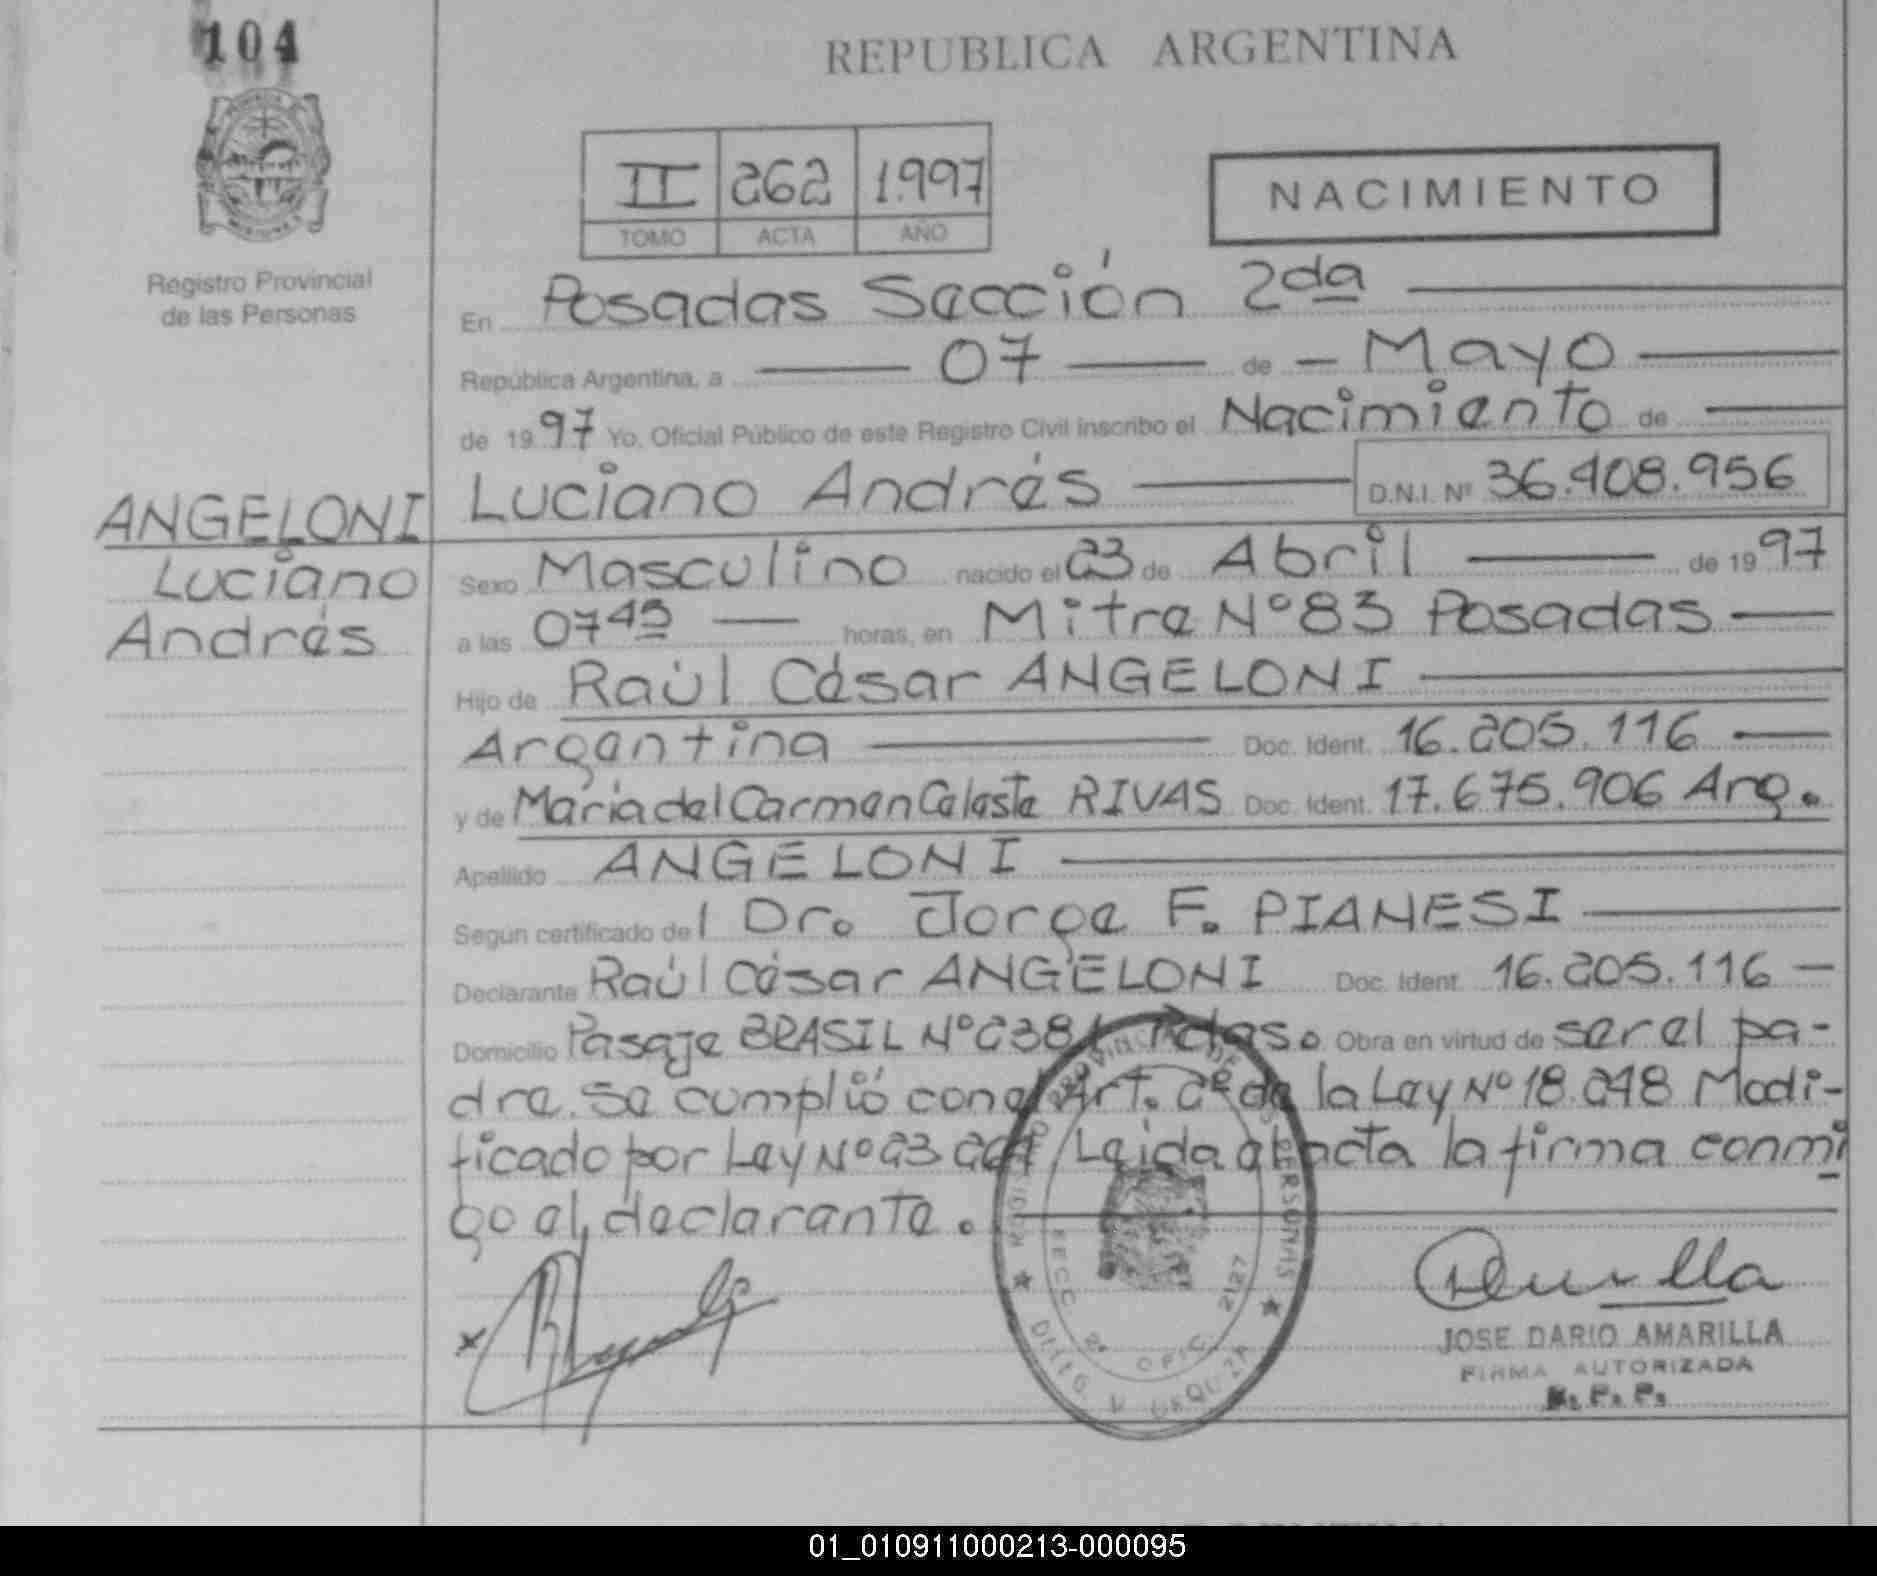 104
REPUBLICA ARGENTINA
II 262 1.997
TOMO ACTA AÑO
NACIMIENTO
Registro Provincial
de las Personas
En Posadas Sección 2da
República Argentina, a 07 de Mayo
de 1997 Yo, Oficial Público de este Registro Civil inscribo el Nacimiento de
Luciano Andrés D.N.I. Nº 36.408.956
ANGELONI
Luciano
Andrés
Sexo Masculino nacido el 23 de Abril de 1997
a las 07 45 horas, en Mitre Nº 83 Posadas
Hijo de Raúl César ANGELONI
Argentina Doc. Ident. 16.205.116
y de María del Carmen Celeste RIVAS Doc. Ident. 17.675.906 Arg.
Apellido ANGELONI
Según certificado del Dr. Jorge F. PIANESI
Declarante Raúl César ANGELONI Doc. Ident. 16.205.116
Domicilio Pasaje BRASIL Nº Pdas. Obra en virtud de ser el pa-
dre. Se cumplió con el Art. 2º de la Ley Nº 18.248 Modi-
ficado por Ley Nº Leida el acta la firma conmi
go el declarante.
REGISTRO PROVINCIAL DE LAS PERSONAS
SECC. 2ª OFIC. 2127
JOSE DARIO AMARILLA
FIRMA AUTORIZADA
R. P. P.
01_010911000213-000095